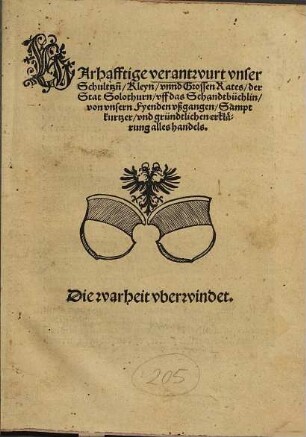 WArhafftige verantwurt vnser
Schultzñ/Kleyn/vnnd Grossen Rates/der
Stat Solothurn/vff das Schandtbüchlin/
von vnsern Fyenden vßgangen/Sampt
kurtzer/vnd gründtlichen erklä-
rung alles handels.
Die warheit vberwindet.
205